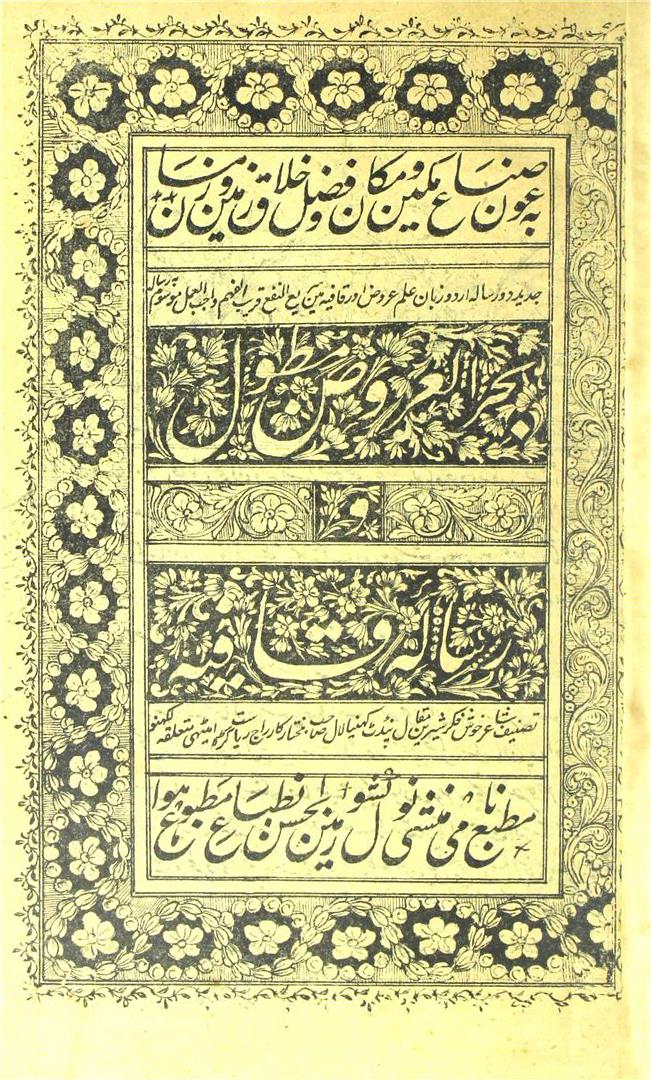 بہ عون صناع مکین و مکان و فضل خلاق زمین و زمان
جدید دو رسالہ اردو زبان علم عروض اور قافیہ میں سریع النفع قریب الفہم واجب العمل موسوم بہ رسالہ
بحر العروض مطول
رسالہ قافیہ
تصنیف شاعر خوش فکر شیرین مقال پنڈت کنہیا لال صاحب مختار کار راج ریاست گڑھ امیٹھی متعلقہ لکھنؤ
مطبع نامی منشی نولکشور میں بحسن انطباع مطبوع ہوا